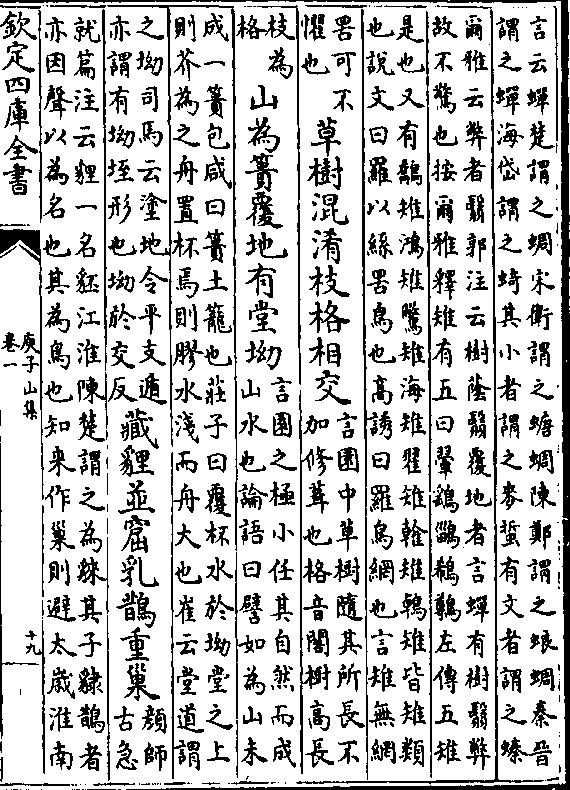 言云蟬楚謂之蜩宋衛謂之螗蜩陳鄭謂之蜋蜩秦晉
謂之蟬海岱謂之䗁其小者謂之麥蚻有文者謂之螓
爾雅云弊者翳郭注云樹蔭翳覆地者言蟬有樹翳弊
故不驚也按爾雅釋雉有五曰翬鷂鶅鵗鷷左傳五雉
是也又有鷮雉鴻雉鷩雉海雉翟雉翰雉鵫雉皆雉類
也說文曰羅以絲罟鳥也高誘曰羅鳥網也言雉無網
罟可不
懼也
草樹混淆枝格相交
言園中草樹隨其所長不
加修葺也格音閣樹高長
枝為
格
山為簣覆地有堂坳
言園之極小任其自然而成
山水也論語曰譬如為山未
成一簣包咸曰簣土籠也莊子曰覆杯水於坳堂之上
則芥為之舟置杯焉則膠水淺而舟大也崔云堂道謂
之坳司馬云塗地令平支遁
亦謂有坳垤形也坳於交反
藏貍並窟乳鵲重巢
顏師
古急
就篇注云貍一名貔江淮陳楚謂之為𧳟其子貄鵲者
亦因聲以為名也其為鳥也知來作巢則避太歲淮南
欽定四庫全書
庾子山集
卷一
十九